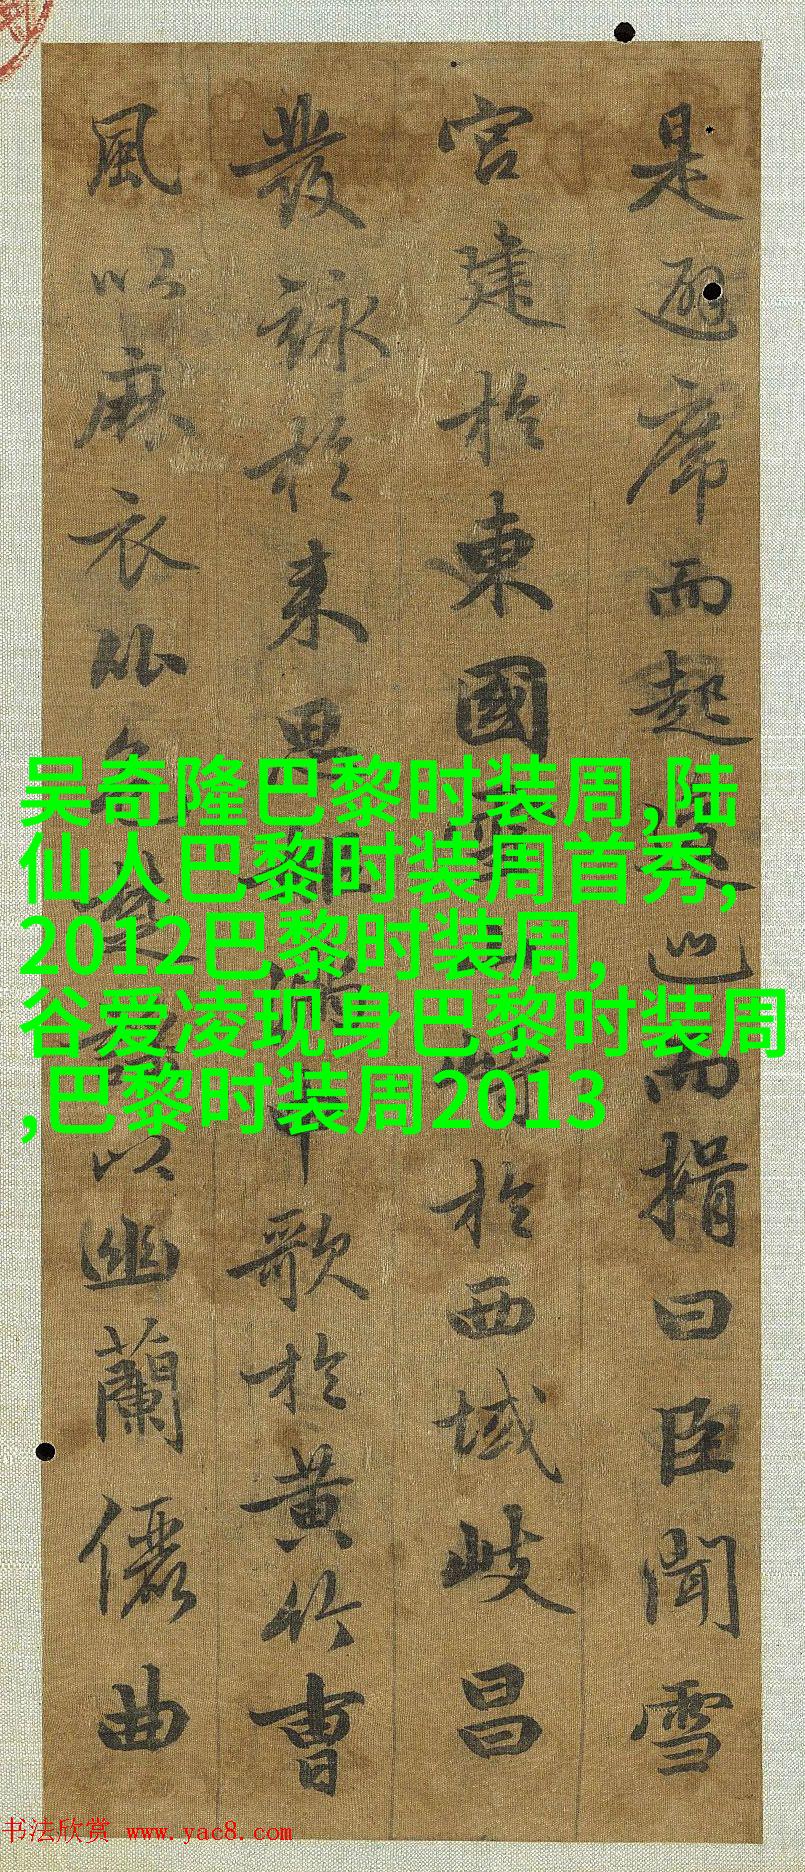 是避席而起巡而揖曰臣聞雪
宮建於東國於西域岐昌
發詠於来思歌於黃竹曹
風以麻衣比色以幽蘭儷曲
吴奇隆巴黎时装周,陆
仙人巴黎时装周首秀,
2012巴黎时装周,
谷爱凌现身巴黎时装周
,巴黎时装周2013
书法欣赏 www.yac8.com